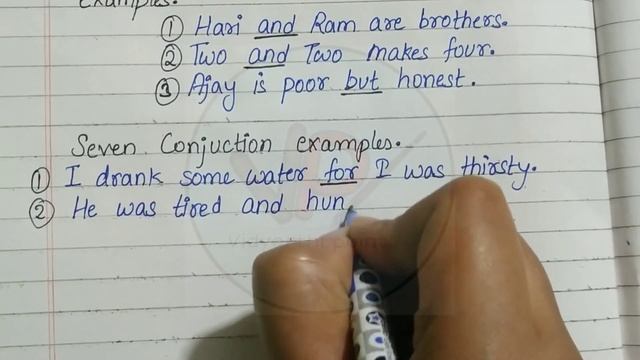 Examples.
① Hari and Ram are brothers.
② Two and Two makes four.
③ Ajay is poor but honest.
Seven Conjuction examples.
① I drank some water for I was thirsty.
② He was tired and hun